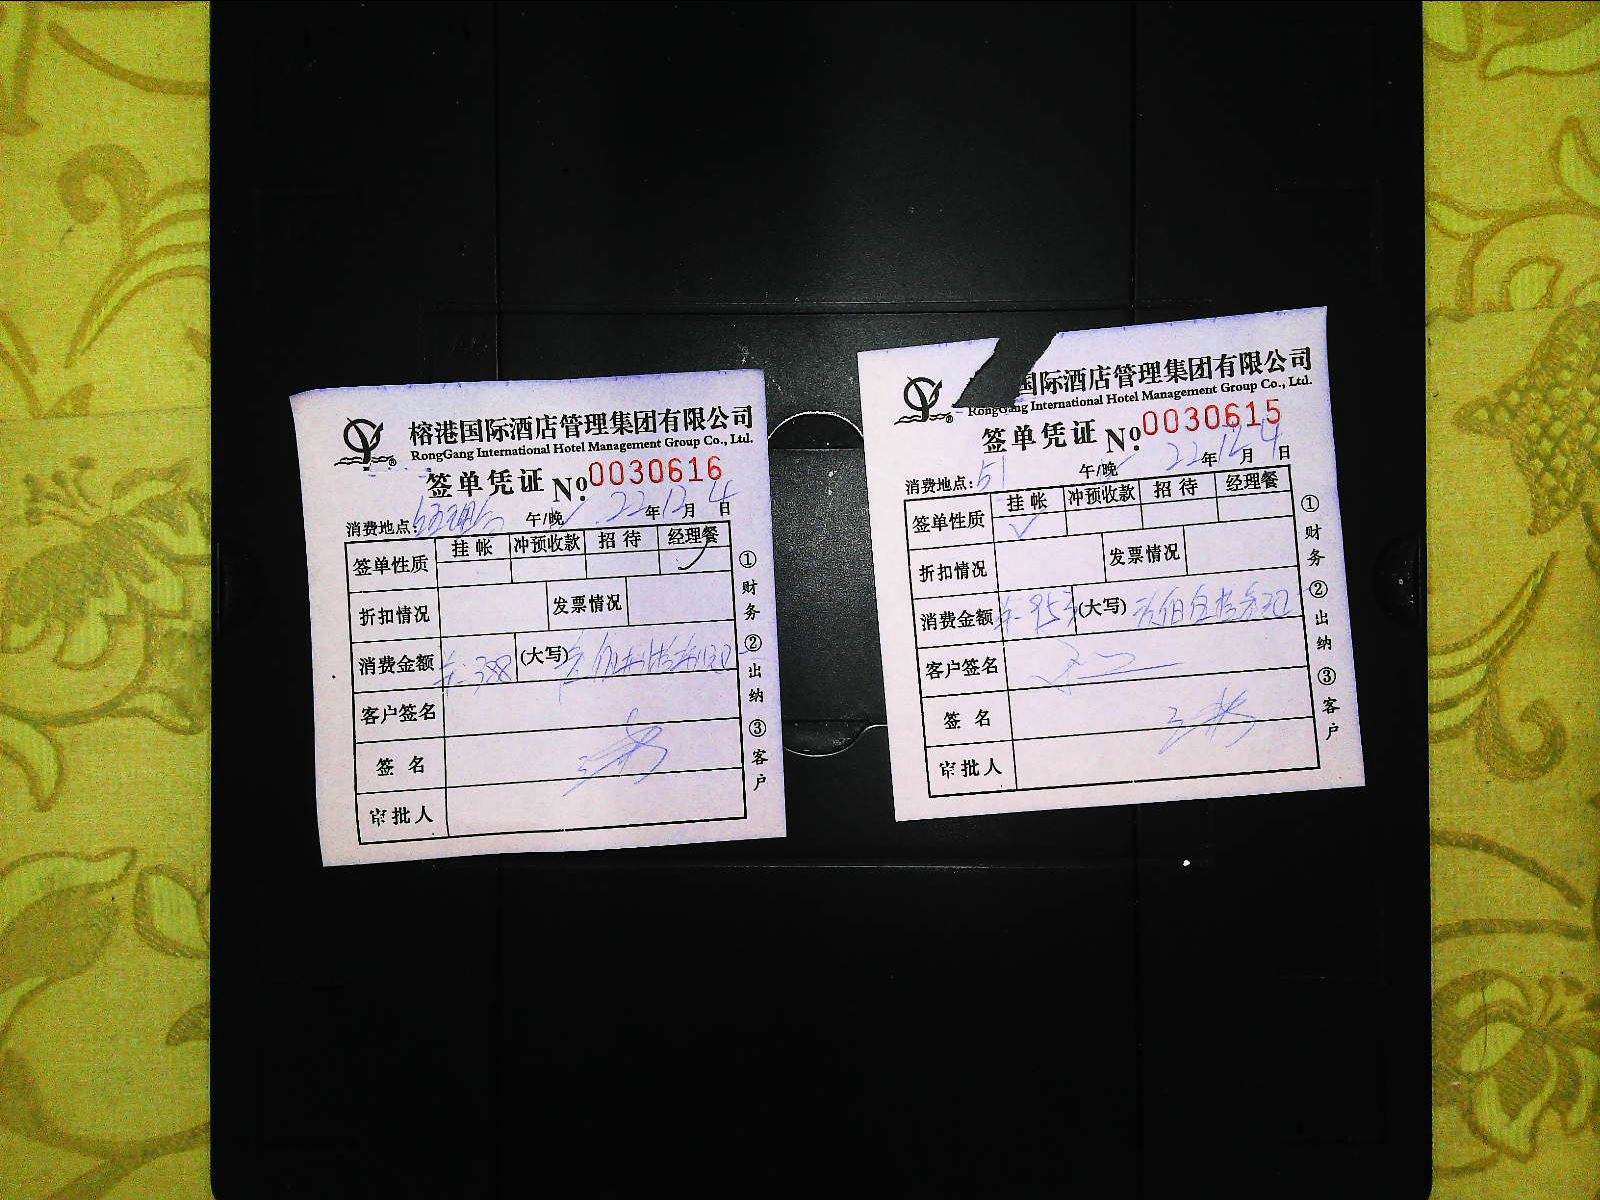 榕港国际酒店管理集团有限公司
RongGang International Hotel Management Group Co., Ltd.
签单凭证 No. 0030616
消费地点: 午/晚 22年12月4日
签单性质 挂帐 冲预收款 招待 经理餐
折扣情况 发票情况
消费金额 388 (大写)
客户签名
签名
审批人
①财务 ②出纳 ③客户
国际酒店管理集团有限公司
RongGang International Hotel Management Group Co., Ltd.
签单凭证 No. 0030615
消费地点: 51 午/晚 22年12月4日
签单性质 挂帐 冲预收款 招待 经理餐
折扣情况 发票情况
消费金额 (大写)
客户签名
签名
审批人
①财务 ②出纳 ③客户